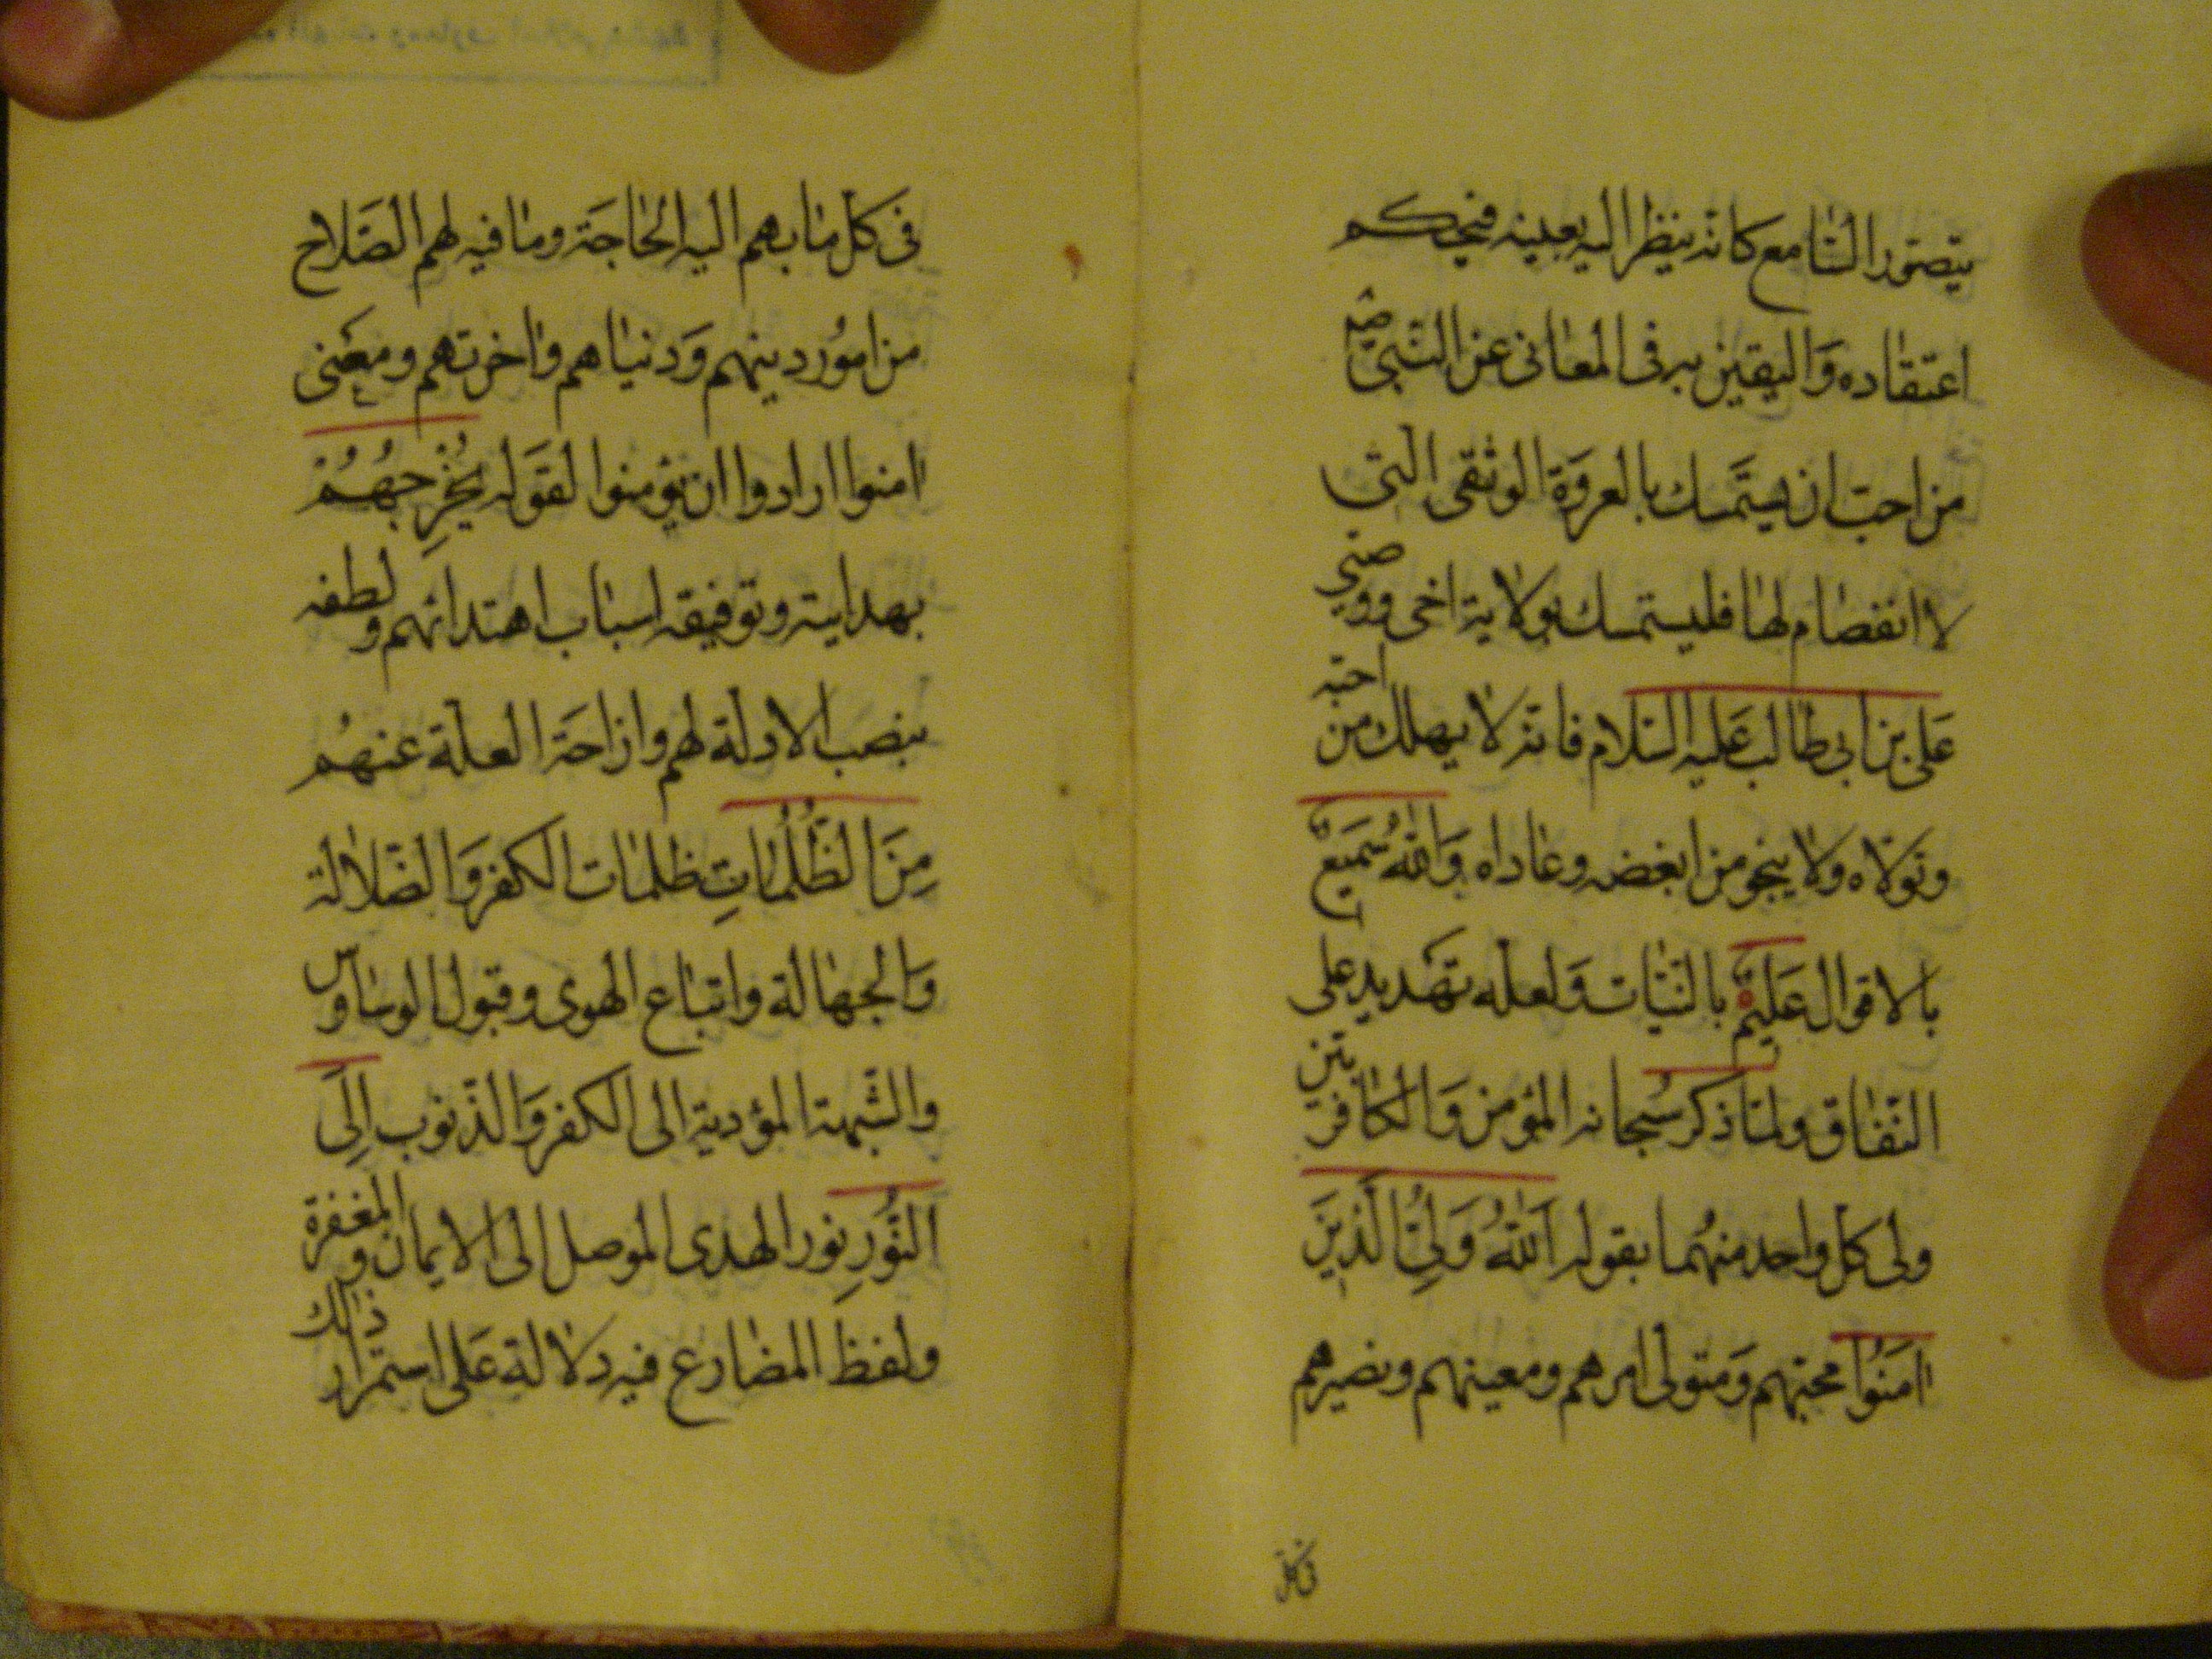 يتصوّر السّامع كانّه ينظر اليه بعينه فيحكم
اعتقاده وَاليقين به وفى المعانى عن النّبى صلعم
من احبّ ان يستمسك بالعروَة الوثقى الّتى
لا انفصام لها فليستمسك بولاية اخى ووصيّى
عَلى بن ابى طالب عَليه السّلام فانّه لا يهلك من احبّه
وتولاّه ولا ينجو من ابغضه وعاداه وَاللّٰهُ سَمِيعٌ
بالاقوال عَلِيمٌ بالنّيّات وَلعلّه تهديد على
النّفاق ولمّا ذكر سُبحانه المؤمن وَالكافر بيّن
ولى كلّ واحد منهُما بقوله اَللّٰهُ وَلِىُّ الَّذِينَ
اٰمَنُوا محبّهم وَمتولى امرهم ومعينهم ونصيرهم
فى كلّ
فى كلّ ما بهم اليه الحاجَة وما فيه لهم الصَّلاح
من امُور دينهم وَدنياهم واخرتهم ومعنى
اٰمنوا ارادوا ان يؤمنوا لقوله يُخْرِجُهُمْ
بهدايته وتوفيقه اسباب اهتدائهم ولطفه
بنصب الادلّة لهم وازاحَة العلّة عنهُم
مِنَ الظُّلُمَاتِ ظلمات الكفر وَالضّلالة
وَالجهالة واتباع الهوى وقبول الوساوس
والشّبهة المؤدية الى الكفر وَالذّنوب اِلَى
النُّورِ نور الهدى الموصل الى الايمان والمغفرة
ولفظ المضارع فيه دلالة عَلى استمرار ذلك